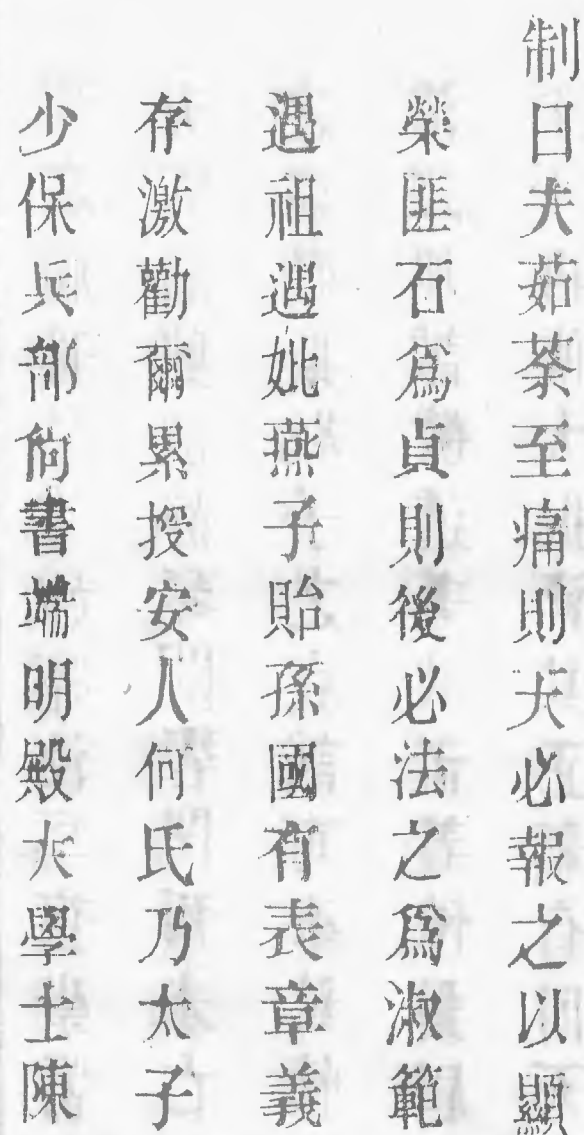 制曰夫茹荼至痛則天必報之以顯
榮匪石爲貞則後必法之爲淑範
遇祖遇妣燕子貽孫國有表章義
存激勸爾累授安人何氏乃太子
少保兵部尙書端明殿大學士陳